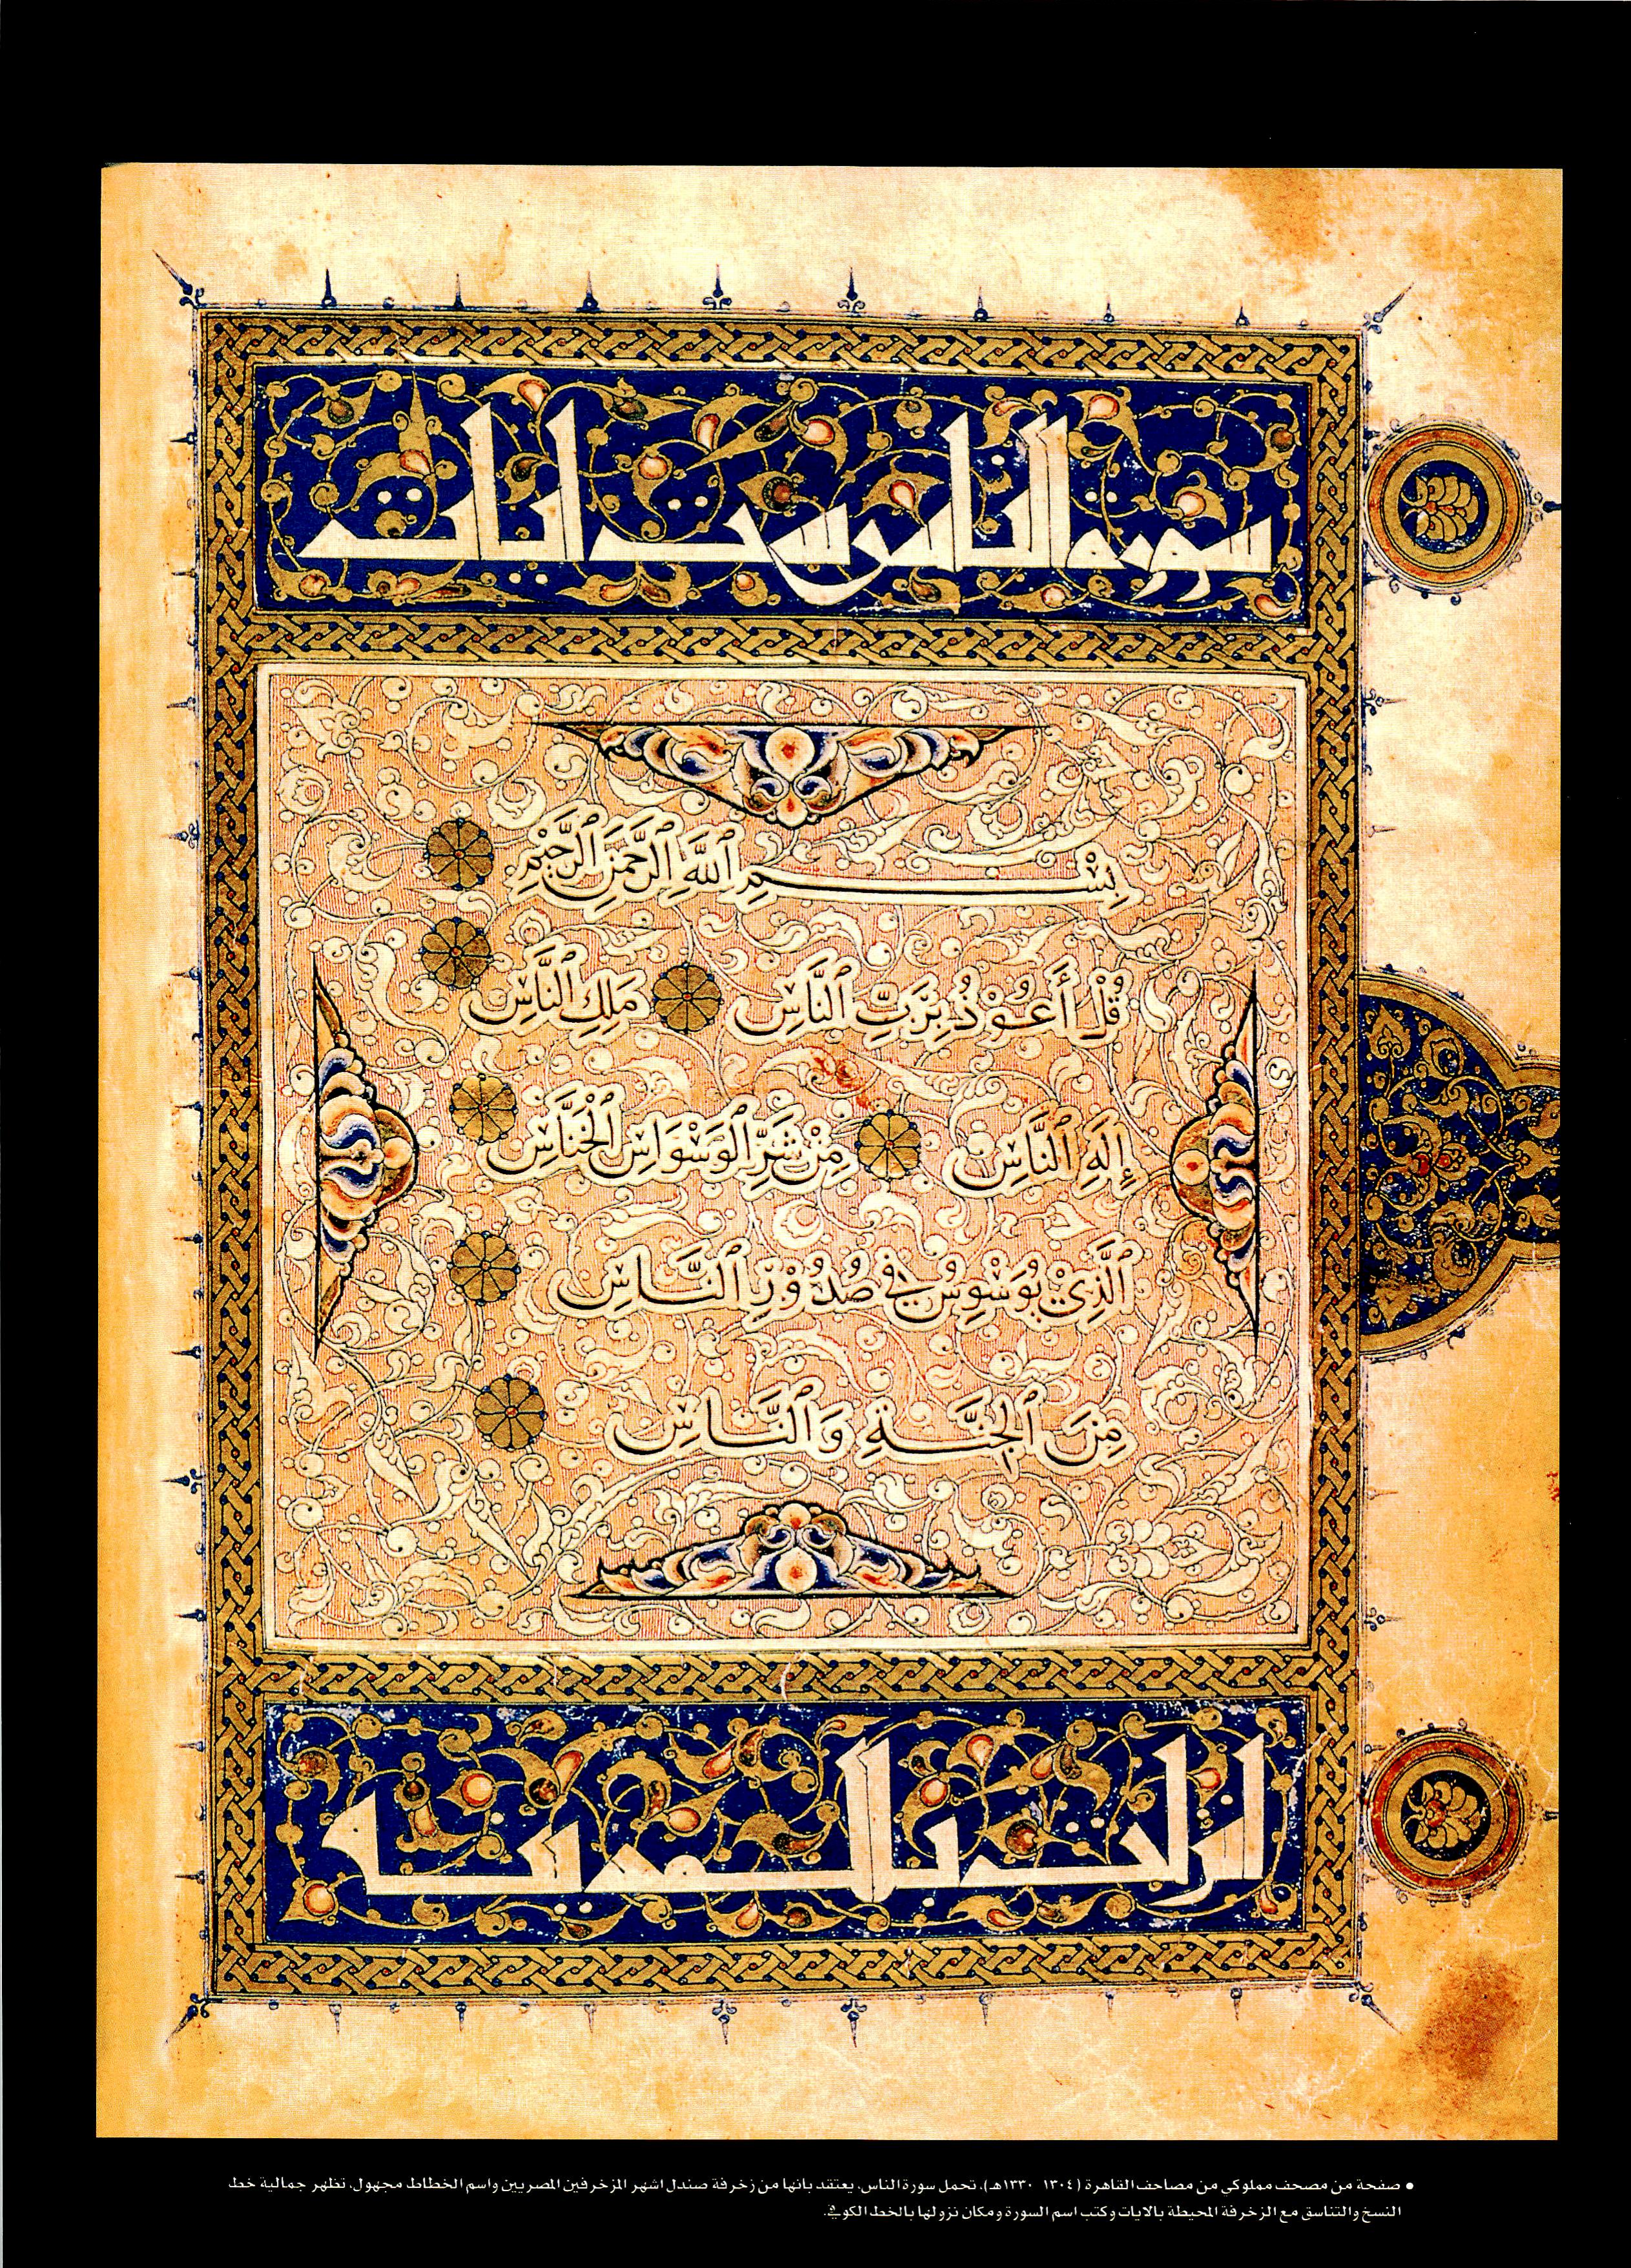 سورة الناس ست ايات
بِسْمِ ٱللَّهِ ٱلرَّحْمَٰنِ ٱلرَّحِيمِ
قُلْ أَعُوْذُ بِرَبِّ ٱلنَّاسِ مَلِكِ ٱلنَّاسِ
إِلَهِ ٱلنَّاسِ مِنْ شَرِّ ٱلْوَسْوَاسِ ٱلْخَنَّاسِ
ٱلَّذِيْ يُوَسْوِسُ فِي صُدُوْرِ ٱلنَّاسِ
مِنَ ٱلْجِنَّةِ وَٱلنَّاسِ
انزلت بالمدينة
• صفحة من مصحف مملوكي من مصاحف القاهرة (١٣٠٤ ١٣٣٠هـ)، تحمل سورة الناس، يعتقد بانها من زخرفة صندل اشهر المزخرفين المصريين واسم الخطاط مجهول، تظهر جمالية خط
النسخ والتناسق مع الزخرفة المحيطة بالايات وكتب اسم السورة ومكان نزولها بالخط الكوفي.